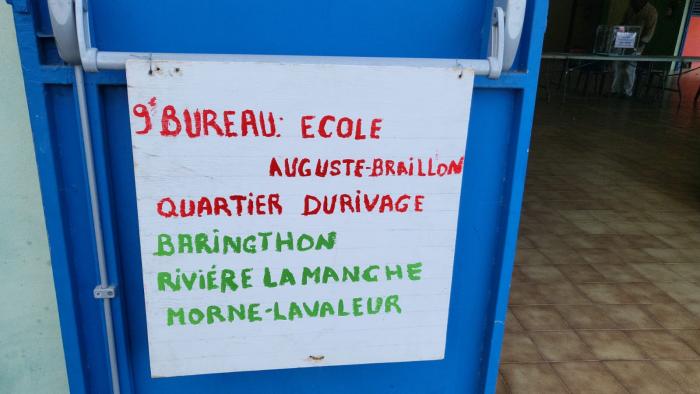 9è BUREAU: ECOLE
AUGUSTE-BRAILLON
QUARTIER DURIVAGE
BARINGTHON
RIVIÉRE LA MANCHE
MORNE-LAVALEUR